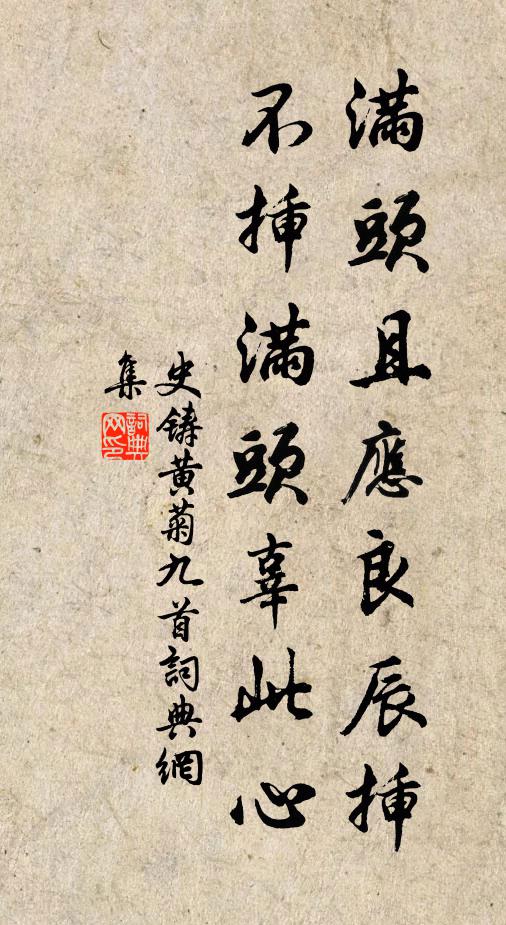 滿頭且應良辰插
不插滿頭辜此心
史鑄黃菊九首詞典網
集
詞典
网印